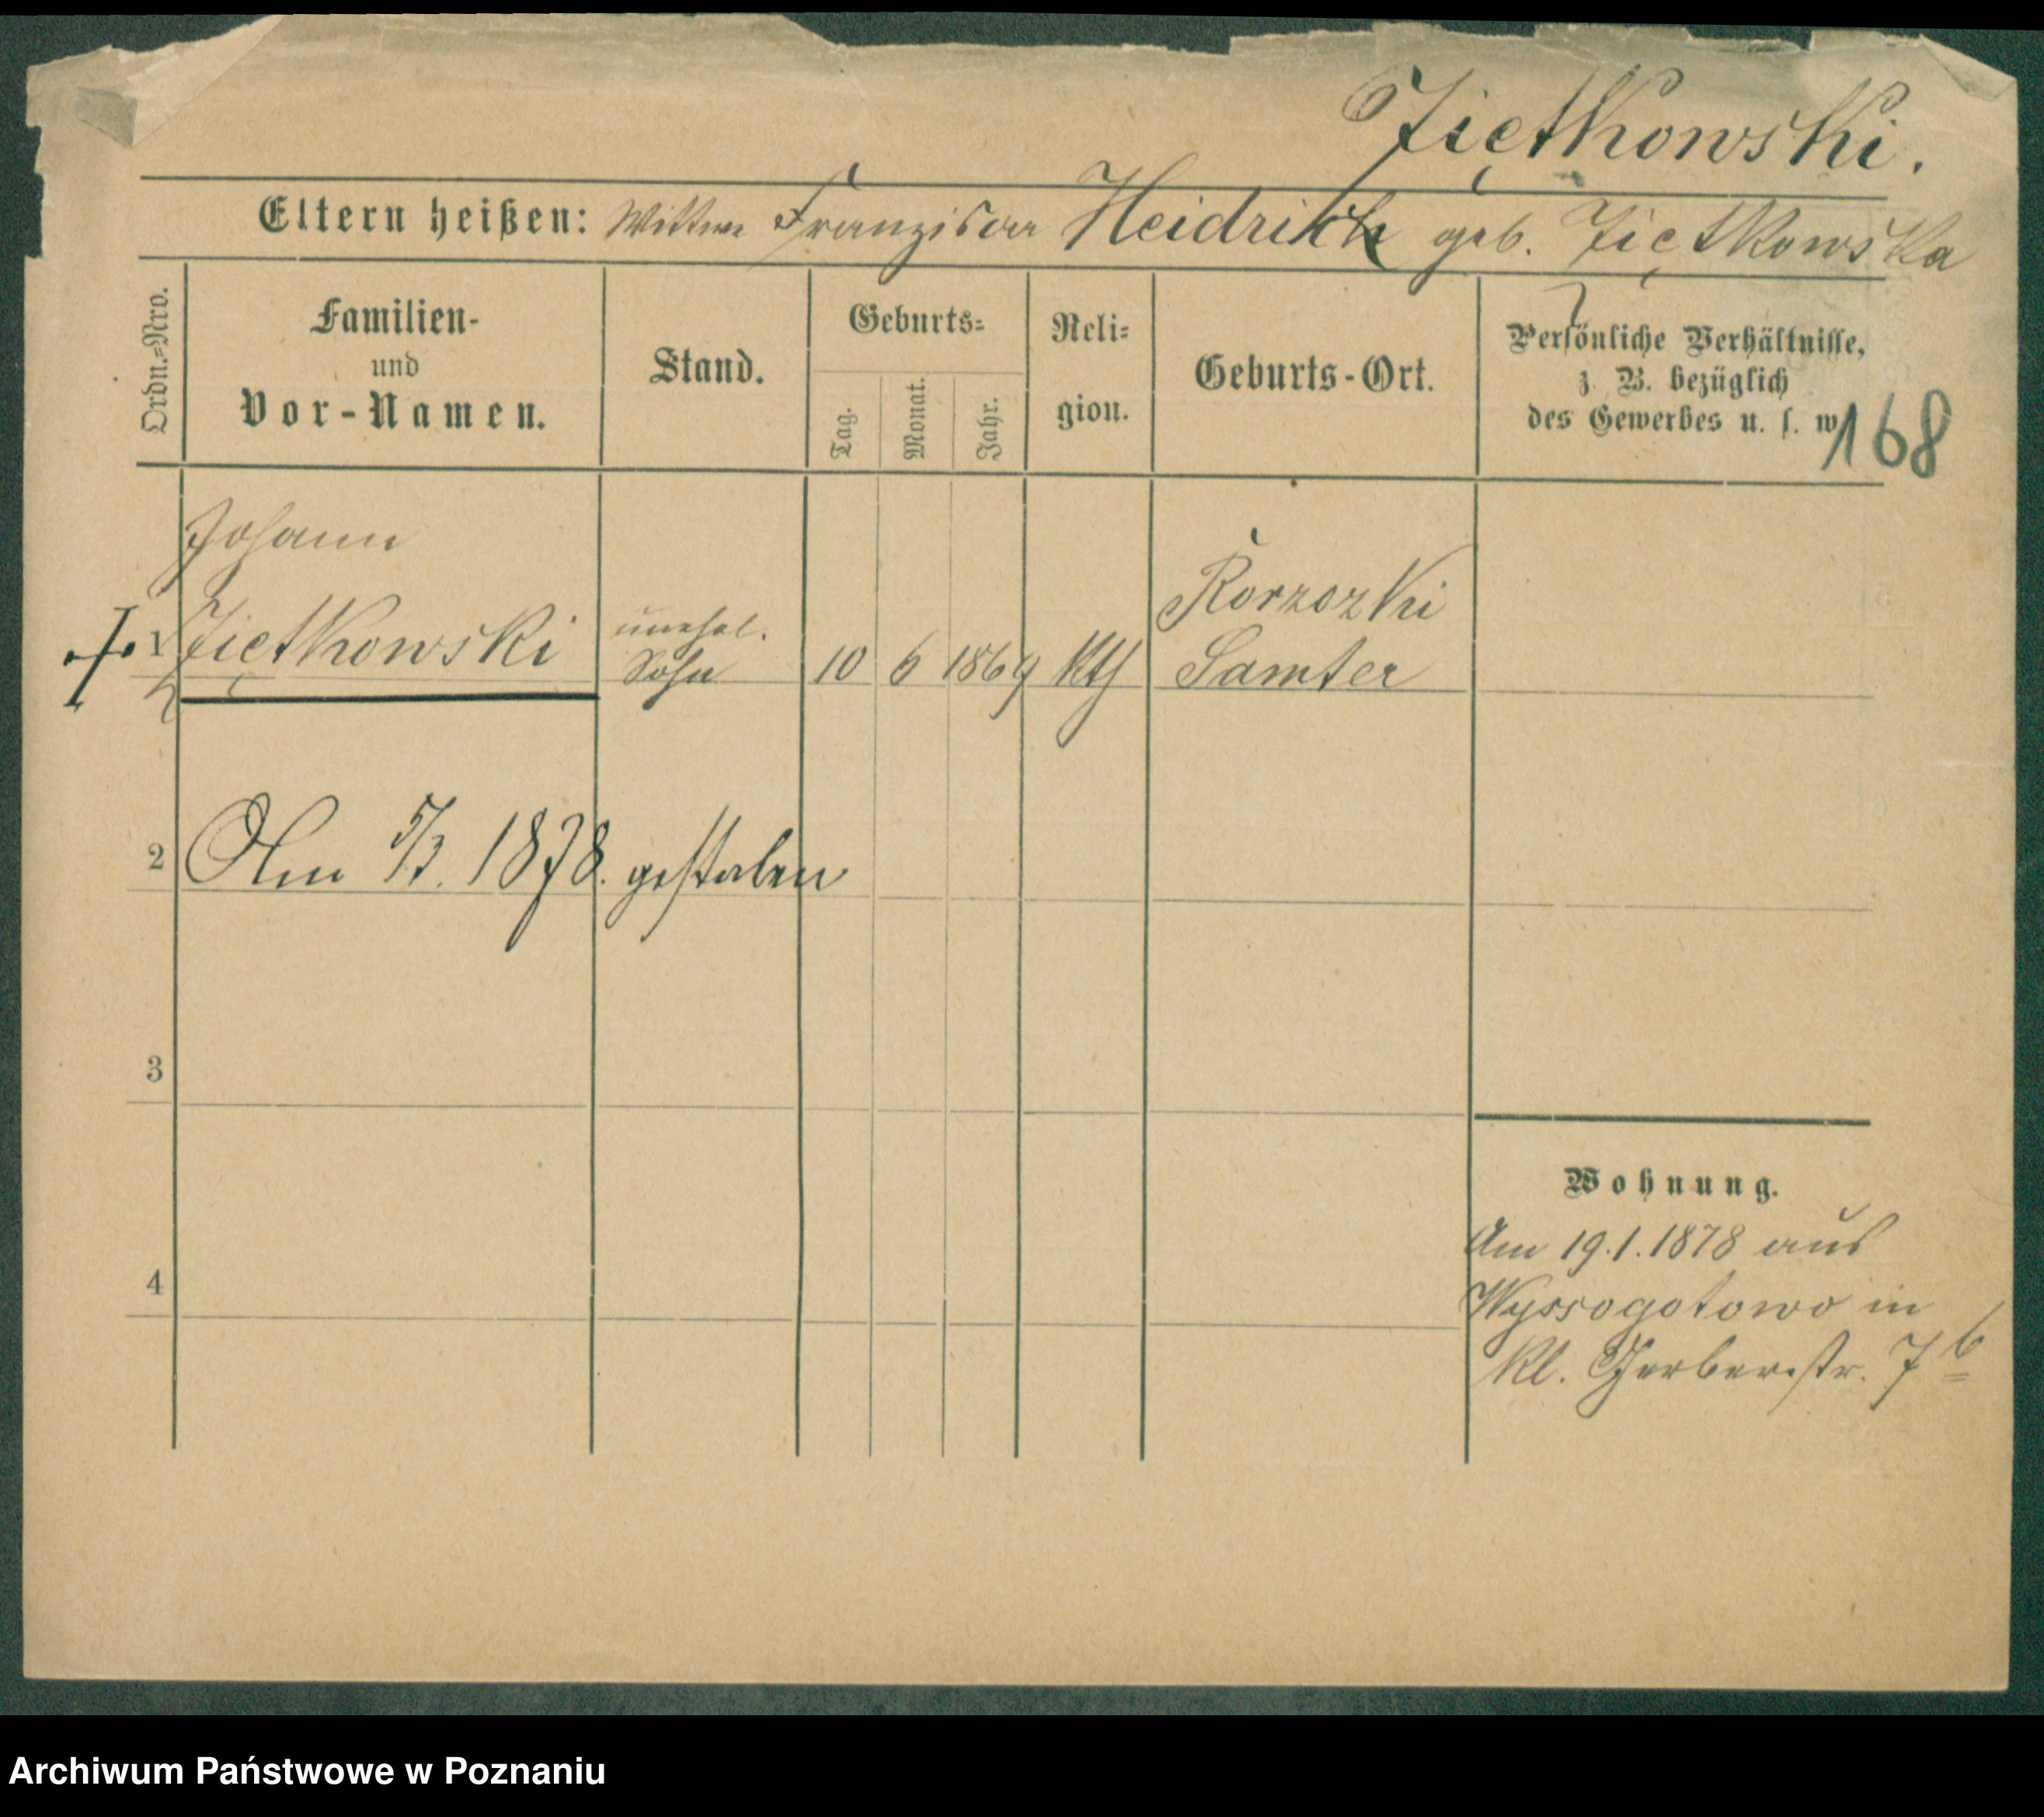 Ziętkowski.
Eltern heißen: Wittwe Franziska Heidrich geb. Ziętkowska
Ordn.=Nro.
Familien-
und
Vor-Namen.
Stand.
Geburts=
Tag.
Monat.
Jahr.
Reli=
gion.
Geburts-Ort.
Persönliche Verhältnisse,
z. B. bezüglich
des Gewerbes u. s. w.
168
Johann
1 Ziętkowski unehel. Sohn 10 6 1869 Kth Samter
2 Am 5/3. 1878. gestorben
3
4
Wohnung.
Am 19.1.1878 aus
Wyssogotowo in
Kl. Gerberstr. 7b
Archiwum Państwowe w Poznaniu